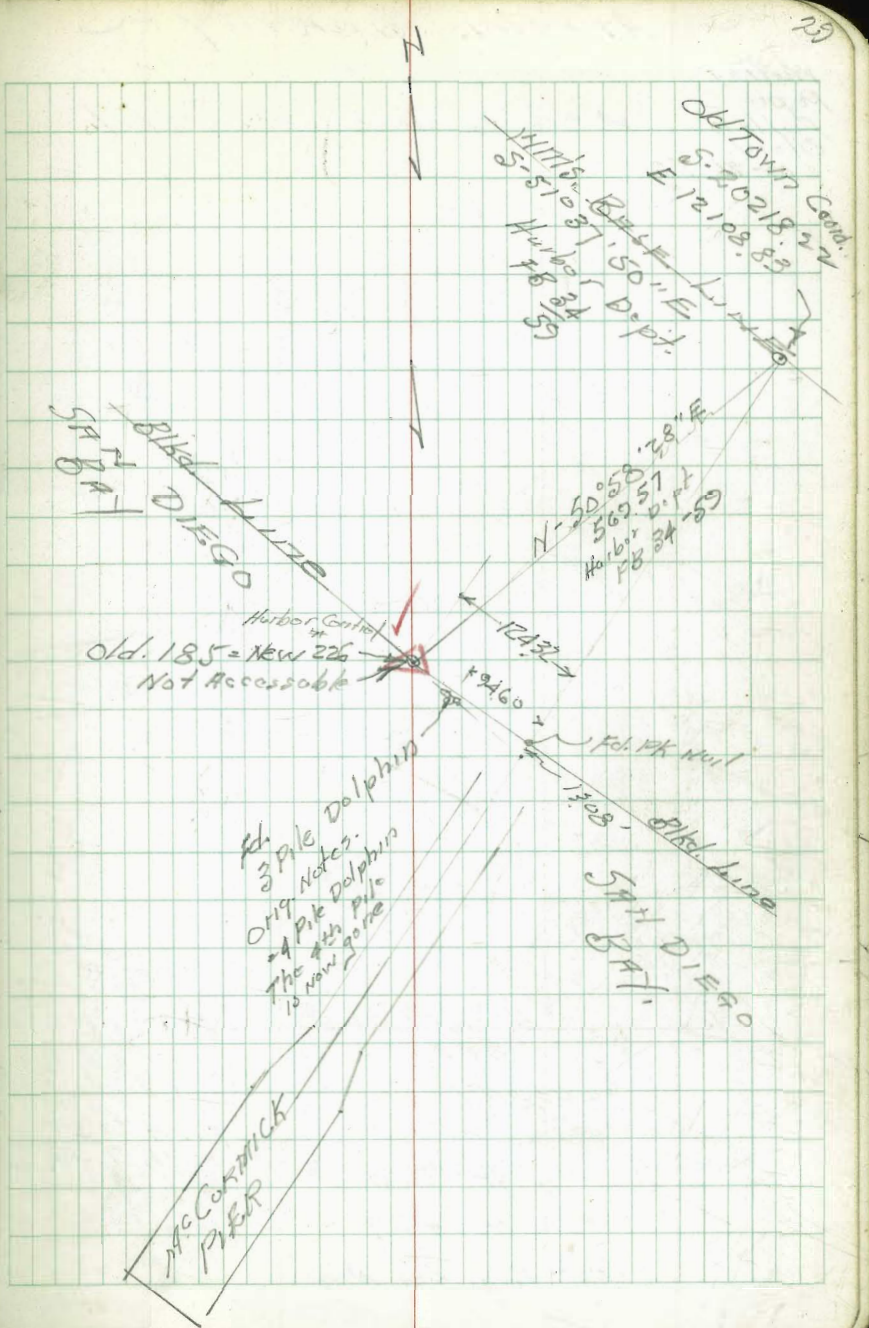 29
N
Old Town Coord.
S. 20218.22
E. 12108.83
Base Line
S-51°03'.50"E
Harbor Dept.
FB 34
/59
Blkd Line
SAN DIEGO
BAY
N-50°58'28"E
569.57
Harbor Dept
FB 34-59
Harbor Control
Old. 185 = New 226
Not Accessable
124.32
94.60
Fd. PK Nail
13.08
Blkd. Line
SAN DIEGO
BAY.
Fd.
3 Pile Dolphin
Orig. Notes.
=4 Pile Dolphin
The 4th pile
is now gone
McCORMICK
PIER